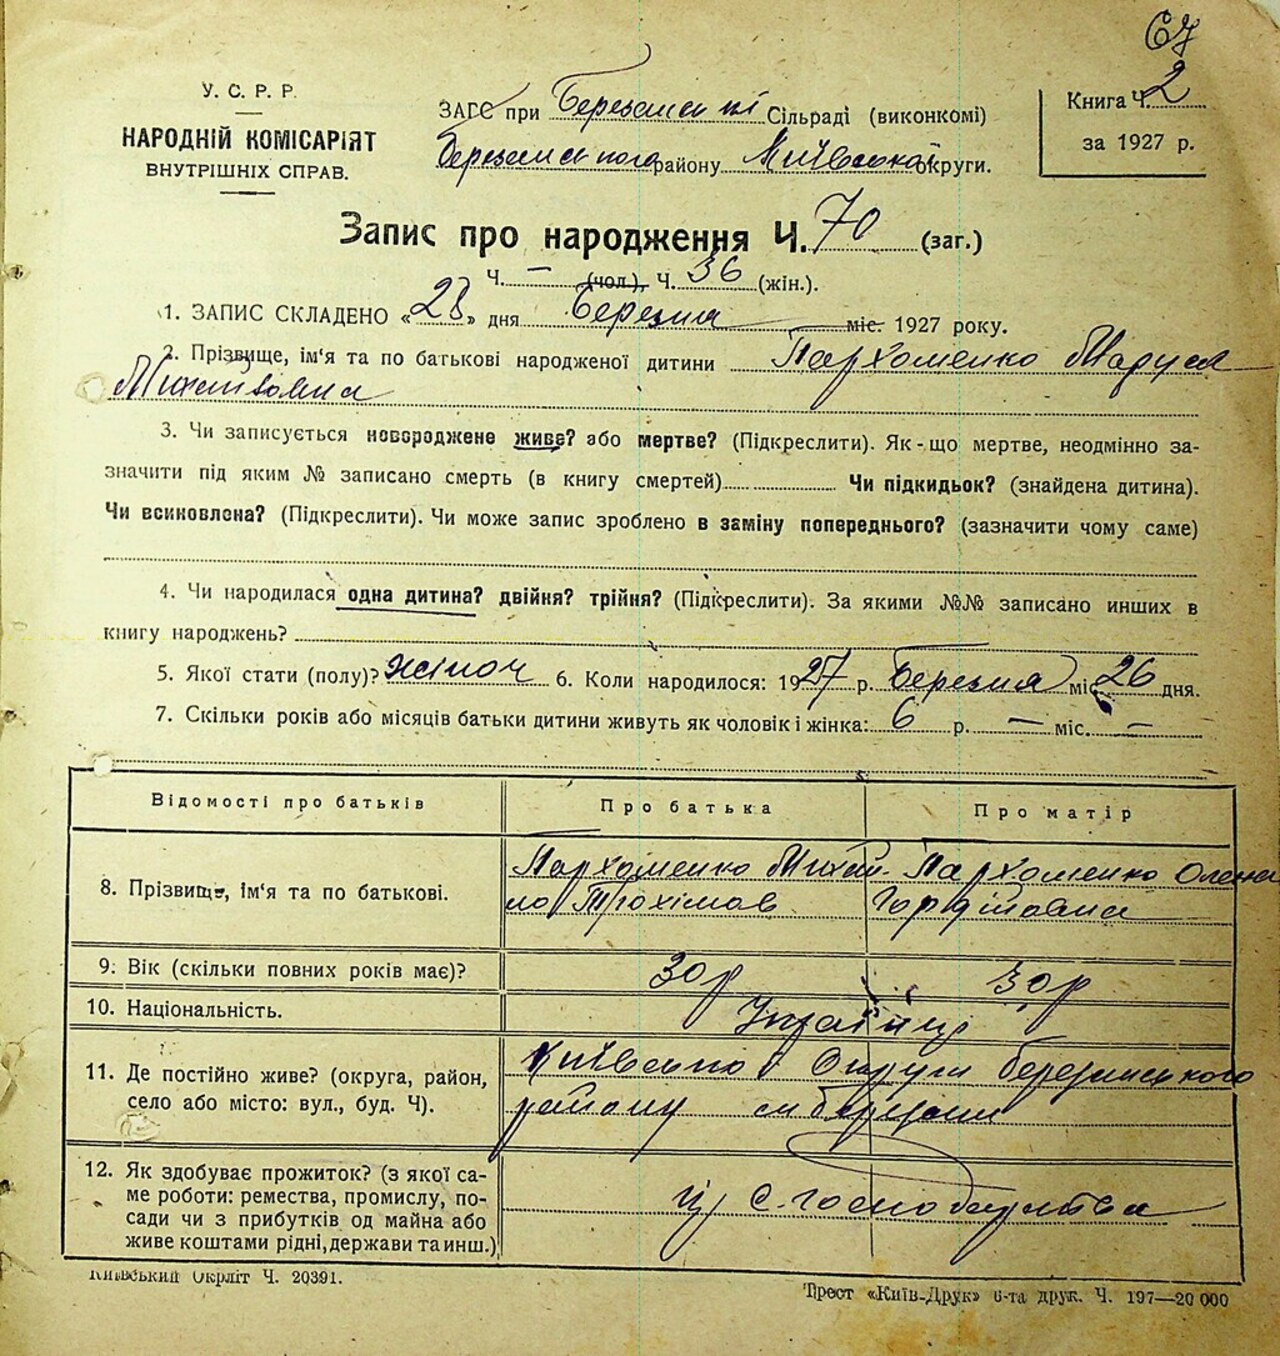 67
У. С. Р. Р.
НАРОДНІЙ КОМІСАРІЯТ
ВНУТРІШНІХ СПРАВ.
ЗАГС при Березанській Сільраді (виконкомі)
Березанського району Київської округи.
Книга Ч. 2
за 1927 р.
Запис про народження Ч. 70 (заг.)
Ч. — (чол.), Ч. 36 (жін.).
1. ЗАПИС СКЛАДЕНО «28» дня Березня міс. 1927 року.
2. Прізвище, ім'я та по батькові народженої дитини Пархоменко Маруся
Михайловна
3. Чи записується новороджене живе? або мертве? (Підкреслити). Як-що мертве, неодмінно за-
значити під яким № записано смерть (в книгу смертей) Чи підкидьок? (знайдена дитина).
Чи всиновлена? (Підкреслити). Чи може запис зроблено в заміну попереднього? (зазначити чому саме)
4. Чи народилася одна дитина? двійня? трійня? (Підкреслити). За якими №№ записано инших в
книгу народжень?
5. Якої стати (полу)? жіноч 6. Коли народилося: 1927 р. Березня міс. 26 дня.
7. Скільки років або місяців батьки дитини живуть як чоловік і жінка: 6 р. — міс. —
Відомості про батьків Про батька Про матір
8. Прізвище, ім'я та по батькові. Пархоменко Михай- Пархоменко Олена
ло Трохімов Гордіївна
9. Вік (скільки повних років має)? 30 р 30 р
10. Національність. Українці
11. Де постійно живе? (округа, район, Київської Округи Березанського
село або місто: вул., буд. Ч). району см Березани
12. Як здобуває прожиток? (з якої са-
ме роботи: ремества, промислу, по-
сади чи з прибутків од майна або
живе коштами рідні, держави та инш.) із С. господарства
Київський Окрліт Ч. 20391.
Трест «Київ-Друк» 6-та друк. Ч. 197—20 000